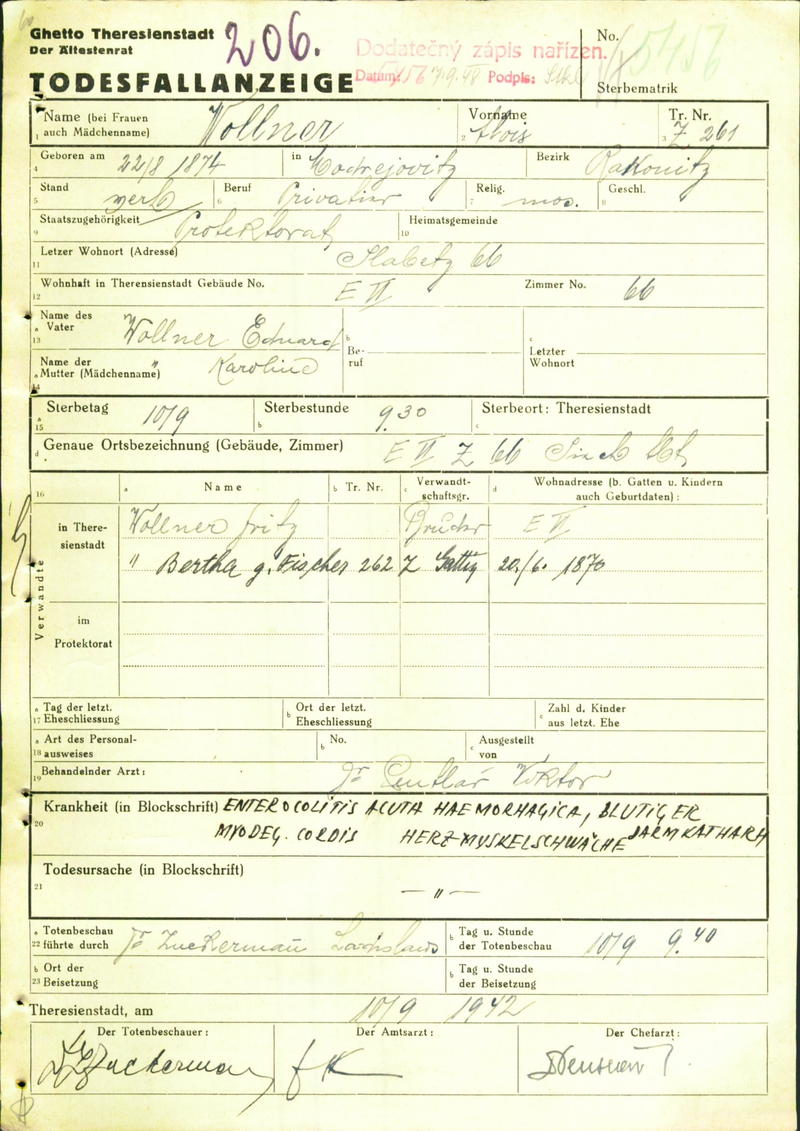 Ghetto Theresienstadt
Der Ältestenrat
206.
Dodatečný zápis nařízen.
Datum: Podpis:
No.
Sterbematrik
TODESFALLANZEIGE
1 Name (bei Frauen auch Mädchenname) Wollner
2 Vorname Alois
3 Tr. Nr. Z 261
4 Geboren am 22/8 1874 in Hodrejovitz Bezirk Rakonitz
5 Stand verh
6 Beruf Privatier
7 Relig. mos.
8 Geschl.
9 Staatszugehörigkeit Protektorat
10 Heimatsgemeinde
11 Letzer Wohnort (Adresse) Slabetz 66
12 Wohnhaft in Theresienstadt Gebäude No. E II Zimmer No. 66
13 a Name des Vater Wollner Eduard
b Beruf
c Letzter Wohnort
14 a Name der Mutter (Mädchenname) " Karoline
15 a Sterbetag 10/9 b Sterbestunde 9.30 c Sterbeort: Theresienstadt
d Genaue Ortsbezeichnung (Gebäude, Zimmer) E II Z 66
16 a Name b Tr. Nr. c Verwandtschaftsgr. d Wohnadresse (b. Gatten u. Kindern auch Geburtdaten):
Verwandte
in Theresienstadt
Wollner Fritz Bruder E II
" Bertha g. Fischer 262 Z Gattin 20/6. 1870
im Protektorat
17 a Tag der letzt. Eheschliessung b Ort der letzt. Eheschliessung c Zahl d. Kinder aus letzt. Ehe
18 a Art des Personalausweises b No. c Ausgestellt von
19 Behandelnder Arzt: Dr Viktor
20 Krankheit (in Blockschrift) ENTEROCOLITIS ACUTA HAEMORHAGICA, BLUTIGER DARMKATHARH
MYODEG. CORDIS HERZMUSKELSCHWÄCHE
21 Todesursache (in Blockschrift)
— " —
22 a Totenbeschau führte durch Dr Zuckerman b Tag u. Stunde der Totenbeschau 10/9 9.40
23 b Ort der Beisetzung b Tag u. Stunde der Beisetzung
Theresienstadt, am 10/9 1942
Der Totenbeschauer: Der Amtsarzt: Der Chefarzt:
Zuckerman